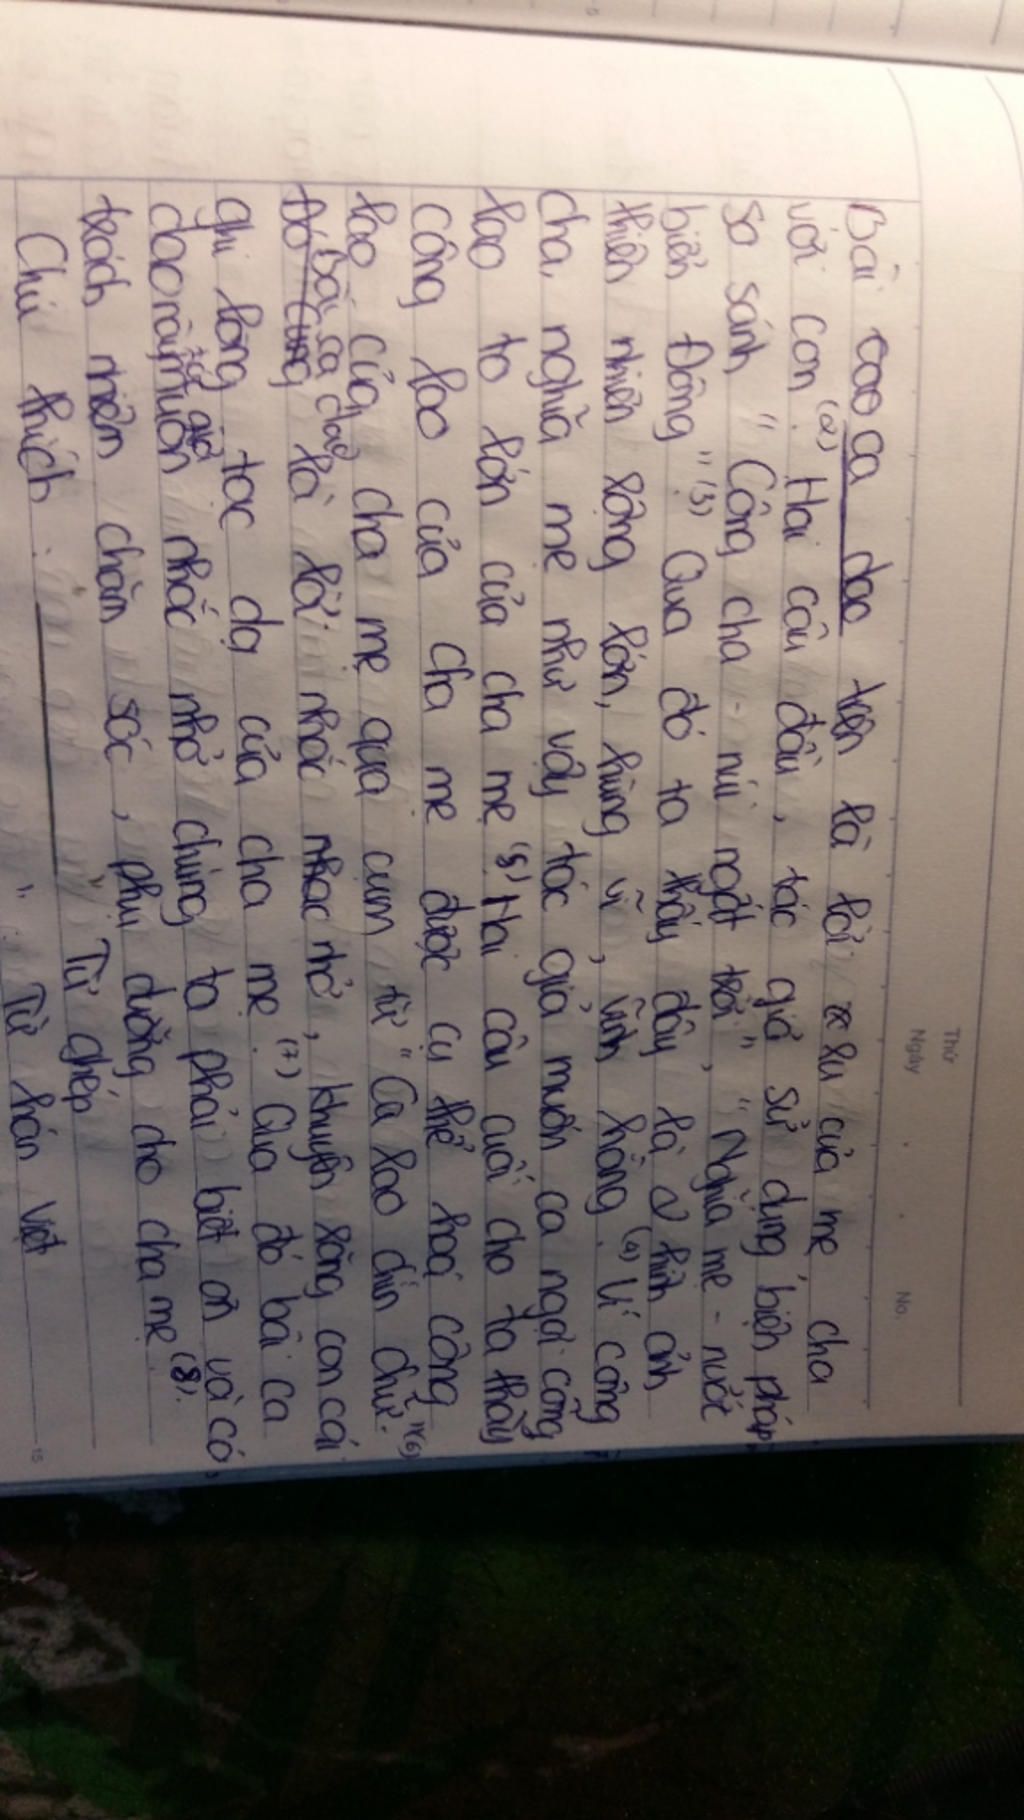 Thứ
Ngày
No.
Bài cao ca dao trên là lời ru của mẹ cha
với con.(2) Hai câu đầu, tác giả sử dụng biện pháp
so sánh "Công cha - núi ngất trời", "Nghĩa mẹ - nước
biển Đông".(3) Qua đó ta thấy đây là hình ảnh
thiên nhiên rộng lớn, hùng vĩ, vĩnh hằng.(4) Ví công
cha, nghĩa mẹ như vậy tác giả muốn ca ngợi công
lao to lớn của cha mẹ.(5) Hai câu cuối cho ta thấy
công lao của cha mẹ được cụ thể hoá công
lao của cha mẹ qua cụm từ "Cù lao chín chữ."(6)
Bài ca dao
Đó cũng là lời nhắc nhở, khuyên răng con cái
ghi lòng tạc dạ của cha mẹ.(7) Qua đó bài ca
tác giả
dao này muốn nhắc nhở chúng ta phải biết ơn và có
trách nhiệm chăm sóc, phụ dưỡng cho cha mẹ.(8).
Chú thích: Từ ghép
Từ hán việt
15